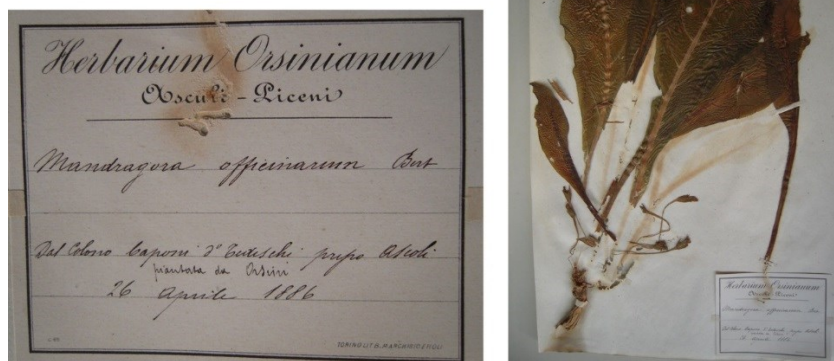 Herbarium Orsinianum
Asculi - Piceni
Mandragora officinarum Bert
Dal Colono Caponi d° Tedeschi presso Ascoli
piantata da Orsini
26 Aprile 1886
Herbarium Orsinianum
Asculi - Piceni
Mandragora officinarum